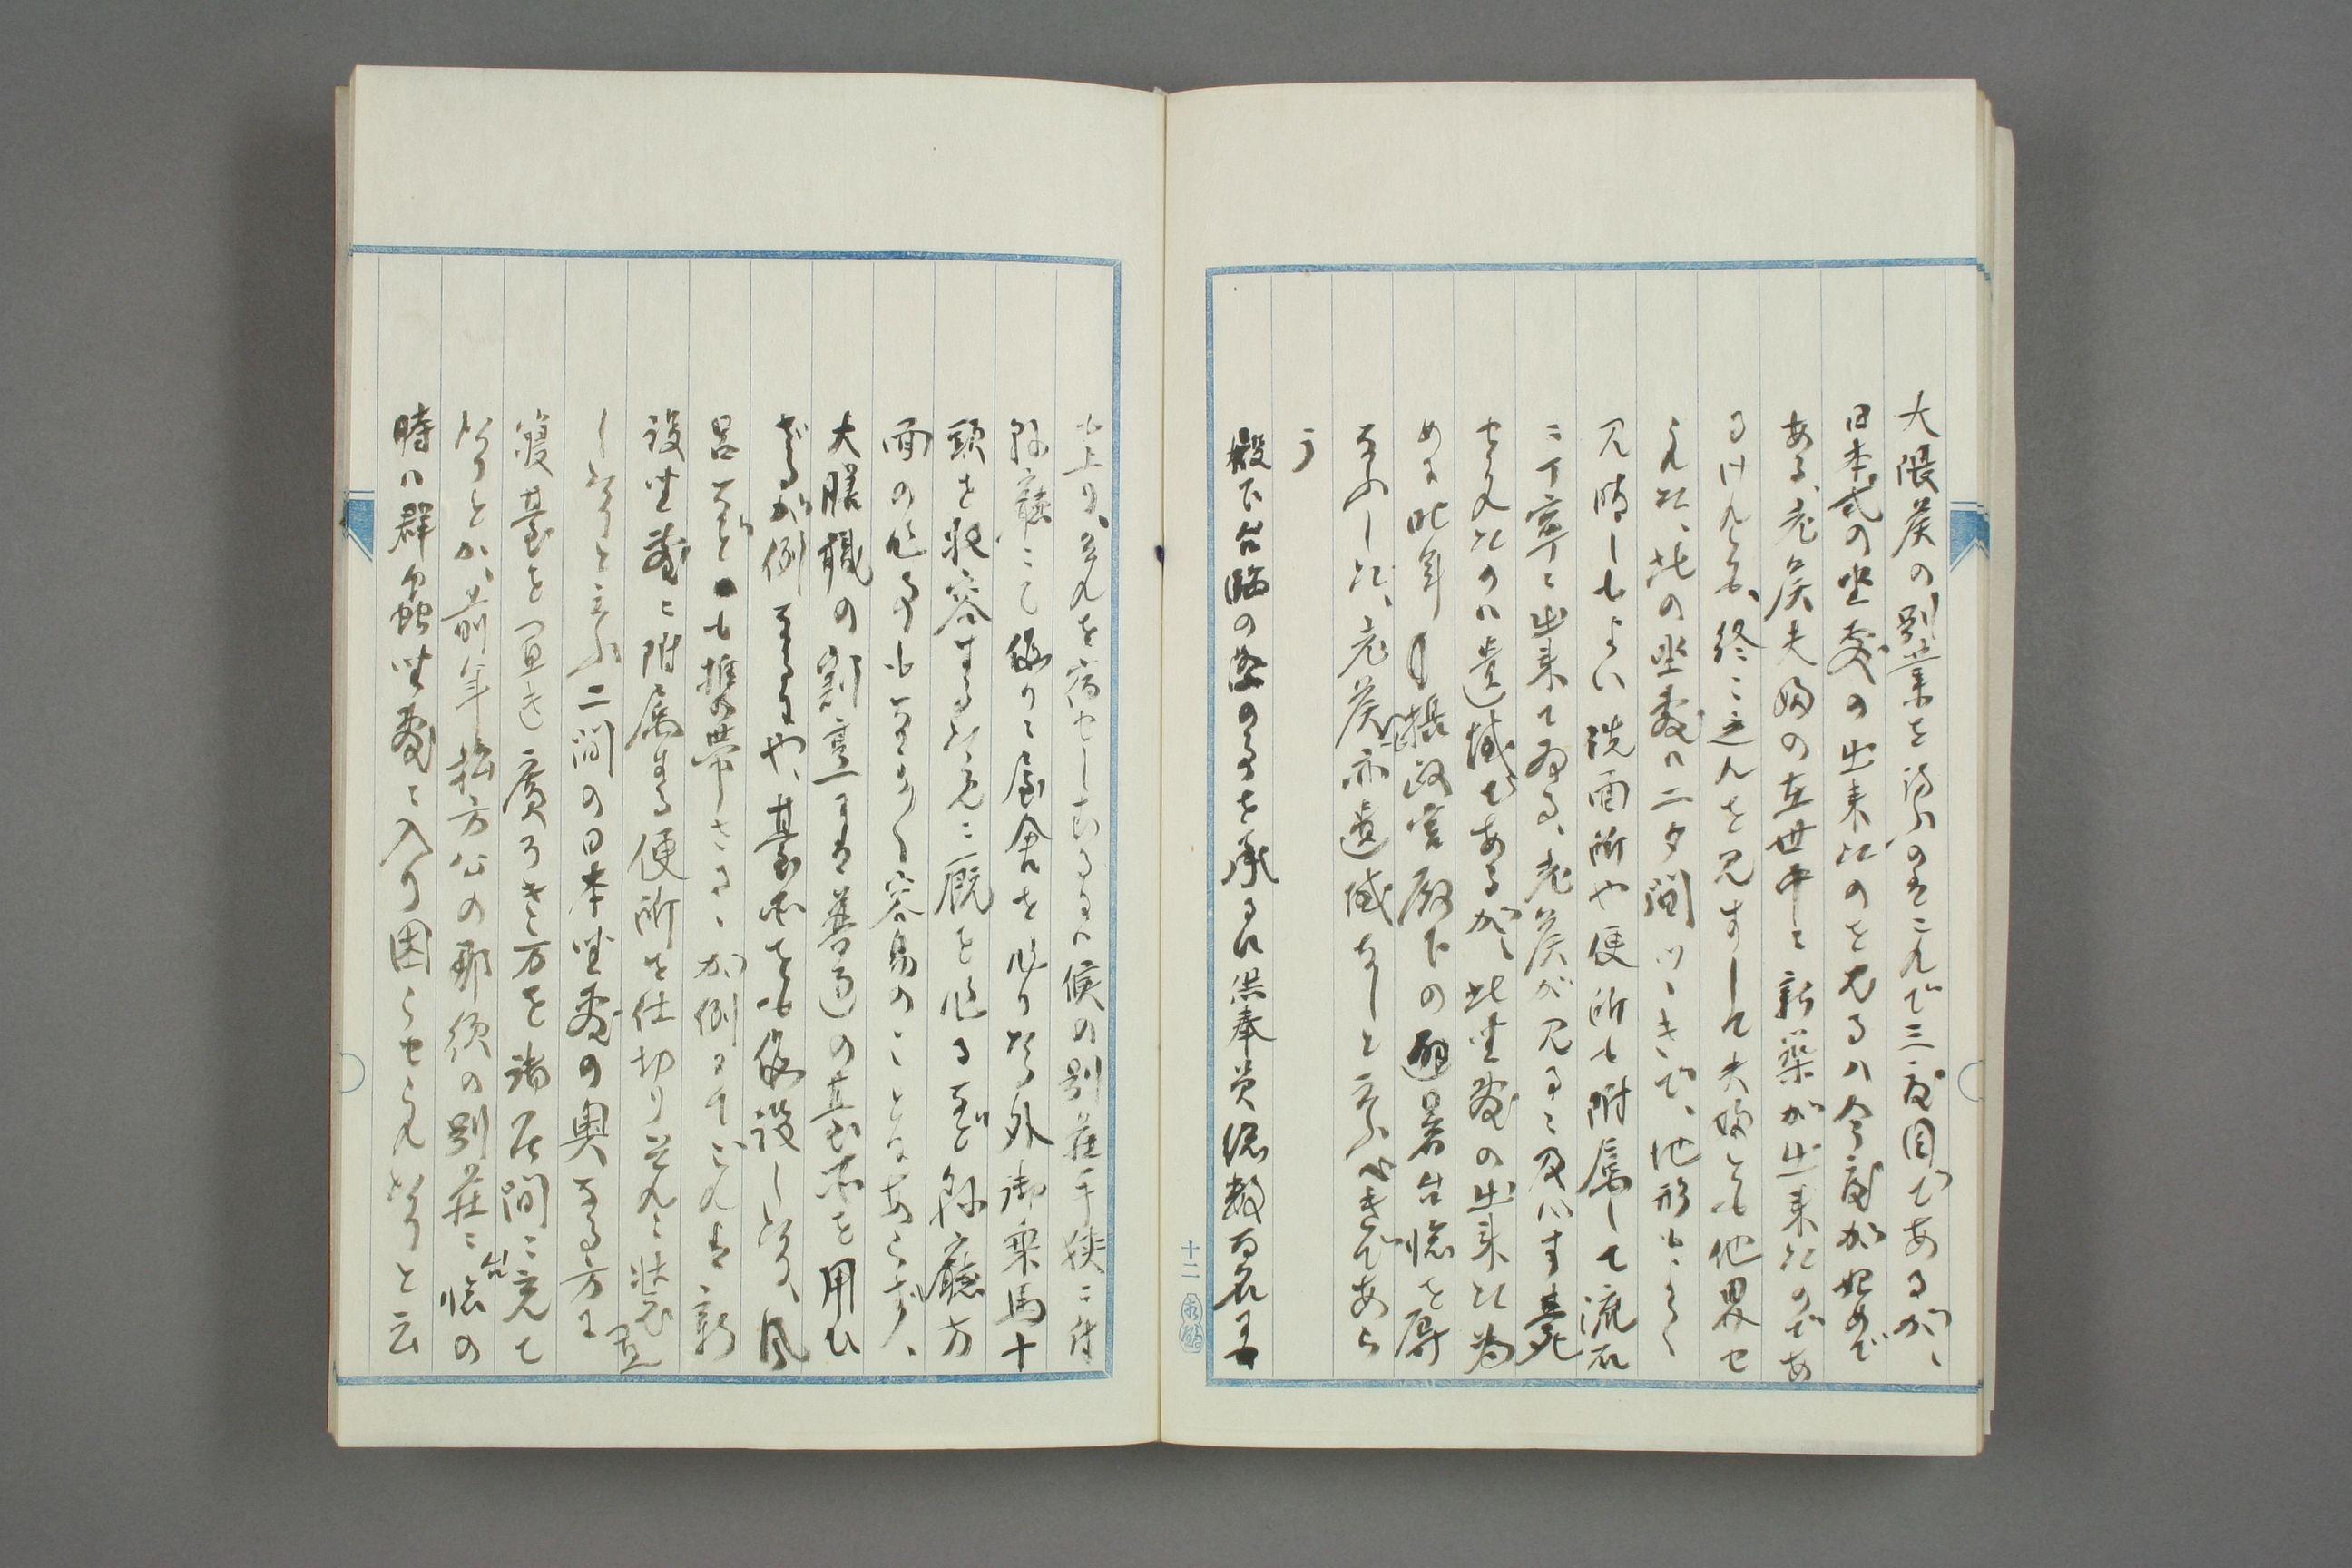 大隈侯の別業を訪ふのはこれで三度目であるが、
日本式の坐敷の出来たのを見るハ今度が始めで
ある、老侯夫婦の在世中ニ新築が出来たのであ
るけれども、終ニ之れを見ずして夫婦とも他界せ
られた、此の坐敷ハ二タ間つゞきで、地形もよく
見晴しもよい洗面所や便所も附属して流石
ニ丁寧ニ出来てゐる、老侯が見るニ及ハず薨
せられたのハ遺憾であるが、此坐敷の出来た為
めに昨年摂政宮殿下の避暑台臨を辱
ふした、老侯亦遺憾なしと云ふべきであら
う
殿下台臨の際のことを承るに供奉員総数百名に
も上り、其れを宿せしむるに侯の別荘手狭ニ付
県廳ニて仮りニ屋舎を作りたる外御乗馬十
頭を収容する為めニ厩を作るなど県廳方
面の仕事も中々容易のことにあらず、
大膳職の割烹には普通の臺所を用ひ
ざるが例なるにや、臺所をも仮設したり、風
呂なども携帯さるゝが例にてこれは新
設坐敷ニ附属する便所を仕切り其れニ装置
したりと云ふ二間の日本坐敷の奥なる方に
寝臺を置き廣ろき方を諸居間ニ充て
たりとか、前年松方公の那須の別荘ニ台臨の
時ハ群蟲坐敷ニ入り困らせられたりと云
十二